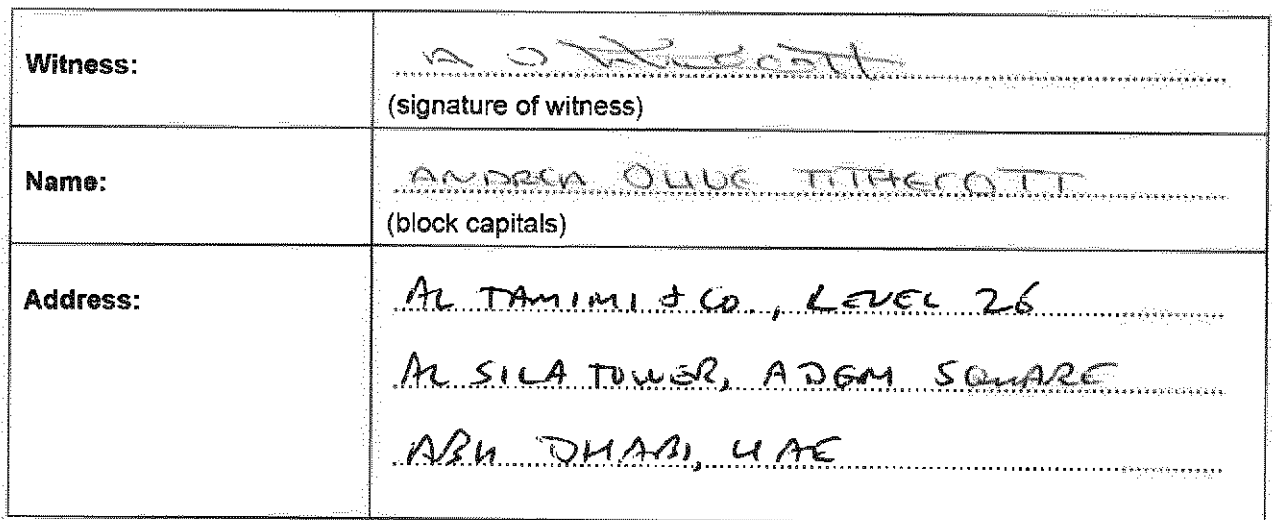 Witness:
A O Tithecott
(signature of witness)
Name:
ANDREA OLIVE TITHECOTT
(block capitals)
Address:
AL TAMIMI & CO., LEVEL 26
AL SILA TOWER, ADGM SQUARE
ABU DHABI, UAE